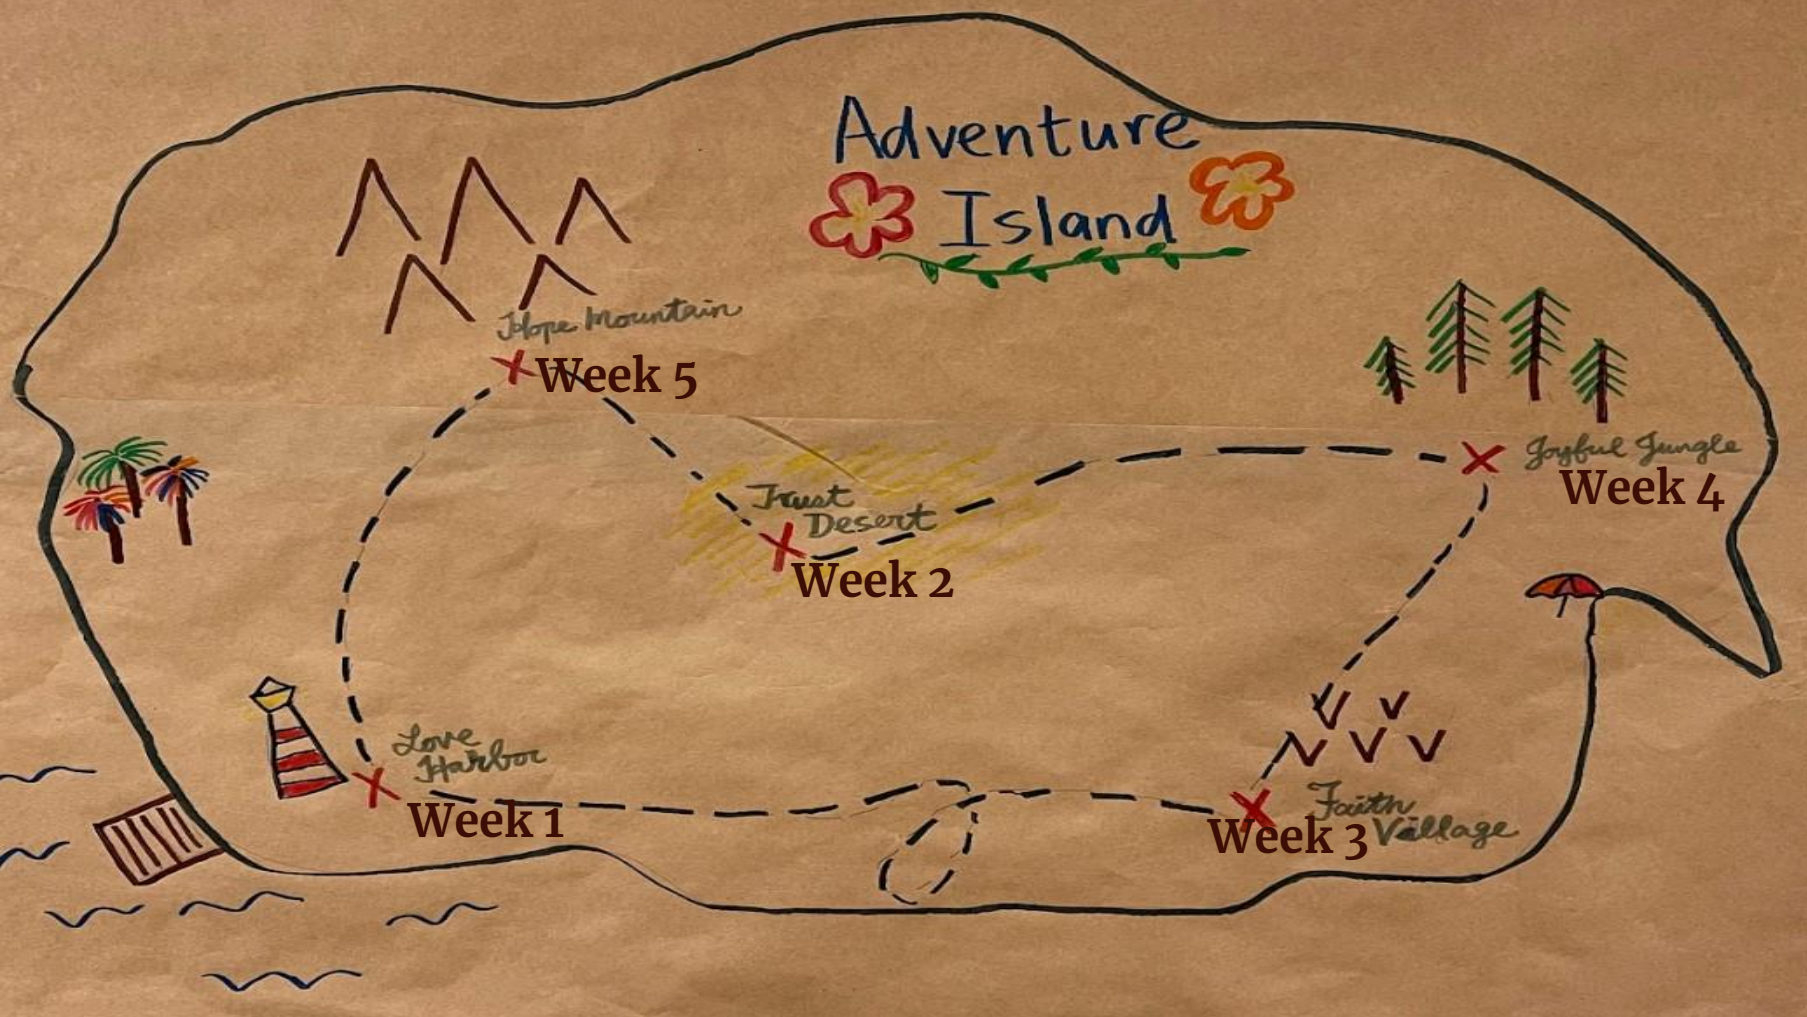 Adventure
Island
Hope Mountain
Week 5
Joyful Jungle
Week 4
Trust
Desert
Week 2
Love
Harbor
Week 1
Faith
Village
Week 3